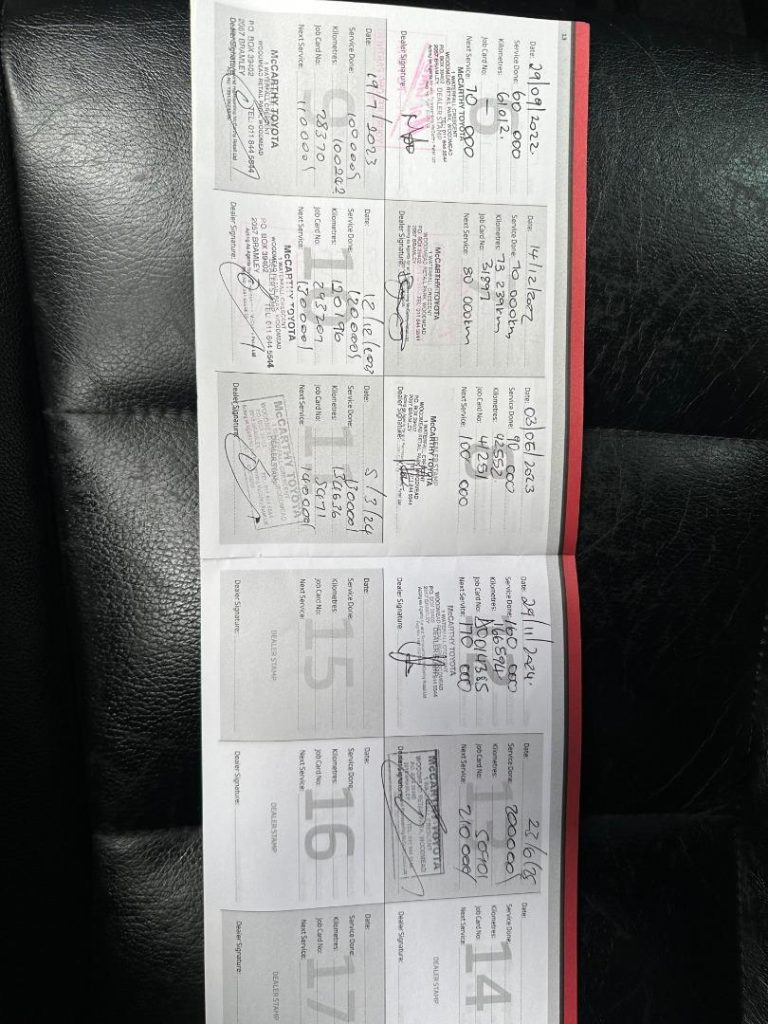 13
Date: 29/09/2022.
Service Done: 60 000
Kilometres: 61012.
Job Card No: —
Next Service: 70 000
McCARTHY TOYOTA
1 WATERFALL CRESCENT
WOODMEAD RETAIL PARK, WOODMEAD
P.O. BOX 39402
2057 BRAMLEY
DEALER STAMP
Dealer Signature:
Date: 14/12/2022
Service Done: 70 000km,
Kilometres: 73 239km
Job Card No: 31897
Next Service: 80 000km
McCARTHY TOYOTA
1 WATERFALL CRESCENT
WOODMEAD RETAIL PARK, WOODMEAD
Dealer Signature:
Date: 03/05/2023
Service Done: 90 000
Kilometres: 92552
Job Card No: 41251
Next Service: 100 000
DEALER STAMP
McCARTHY TOYOTA
WOODMEAD RETAIL PARK, WOODMEAD
Dealer Signature:
Date: 19/7/2023
Service Done: 100 000
Kilometres: 100242
Job Card No: 28370
Next Service: 110000
McCARTHY TOYOTA
1 WATERFALL CRESCENT
WOODMEAD RETAIL PARK, WOODMEAD
P.O. BOX 39402
2057 BRAMLEY TEL 011 844 5844
Dealer Signature:
Date: 12/12/2023
Service Done: 120000
Kilometres: 120196
Job Card No:
Next Service: 130000
McCARTHY TOYOTA
1 WATERFALL CRESCENT
WOODMEAD RETAIL PARK, WOODMEAD
P.O. BOX 39402
2057 BRAMLEY TEL 011 844 5844
Dealer Signature:
Date: 5/3/24
Service Done: 130000
Kilometres: 134636
Job Card No:
Next Service: 140000
McCARTHY TOYOTA
DEALER STAMP
Dealer Signature:
Date: 29/11/2024.
Service Done: 160 000
Kilometres: 166594
Job Card No:
Next Service: 170 000
McCARTHY TOYOTA
Dealer Signature:
13
Date: 23/6/25
Service Done: 200000
Kilometres:
Job Card No: 50401
Next Service: 210 000
McCARTHY TOYOTA
Dealer Signature:
14
Date:
Service Done:
Kilometres:
Job Card No:
Next Service:
DEALER STAMP
Dealer Signature:
15
Date:
Service Done:
Kilometres:
Job Card No:
Next Service:
DEALER STAMP
Dealer Signature:
16
Date:
Service Done:
Kilometres:
Job Card No:
Next Service:
DEALER STAMP
Dealer Signature:
17
Date:
Service Done:
Kilometres:
Job Card No:
Next Service:
DEALER STAMP
Dealer Signature: